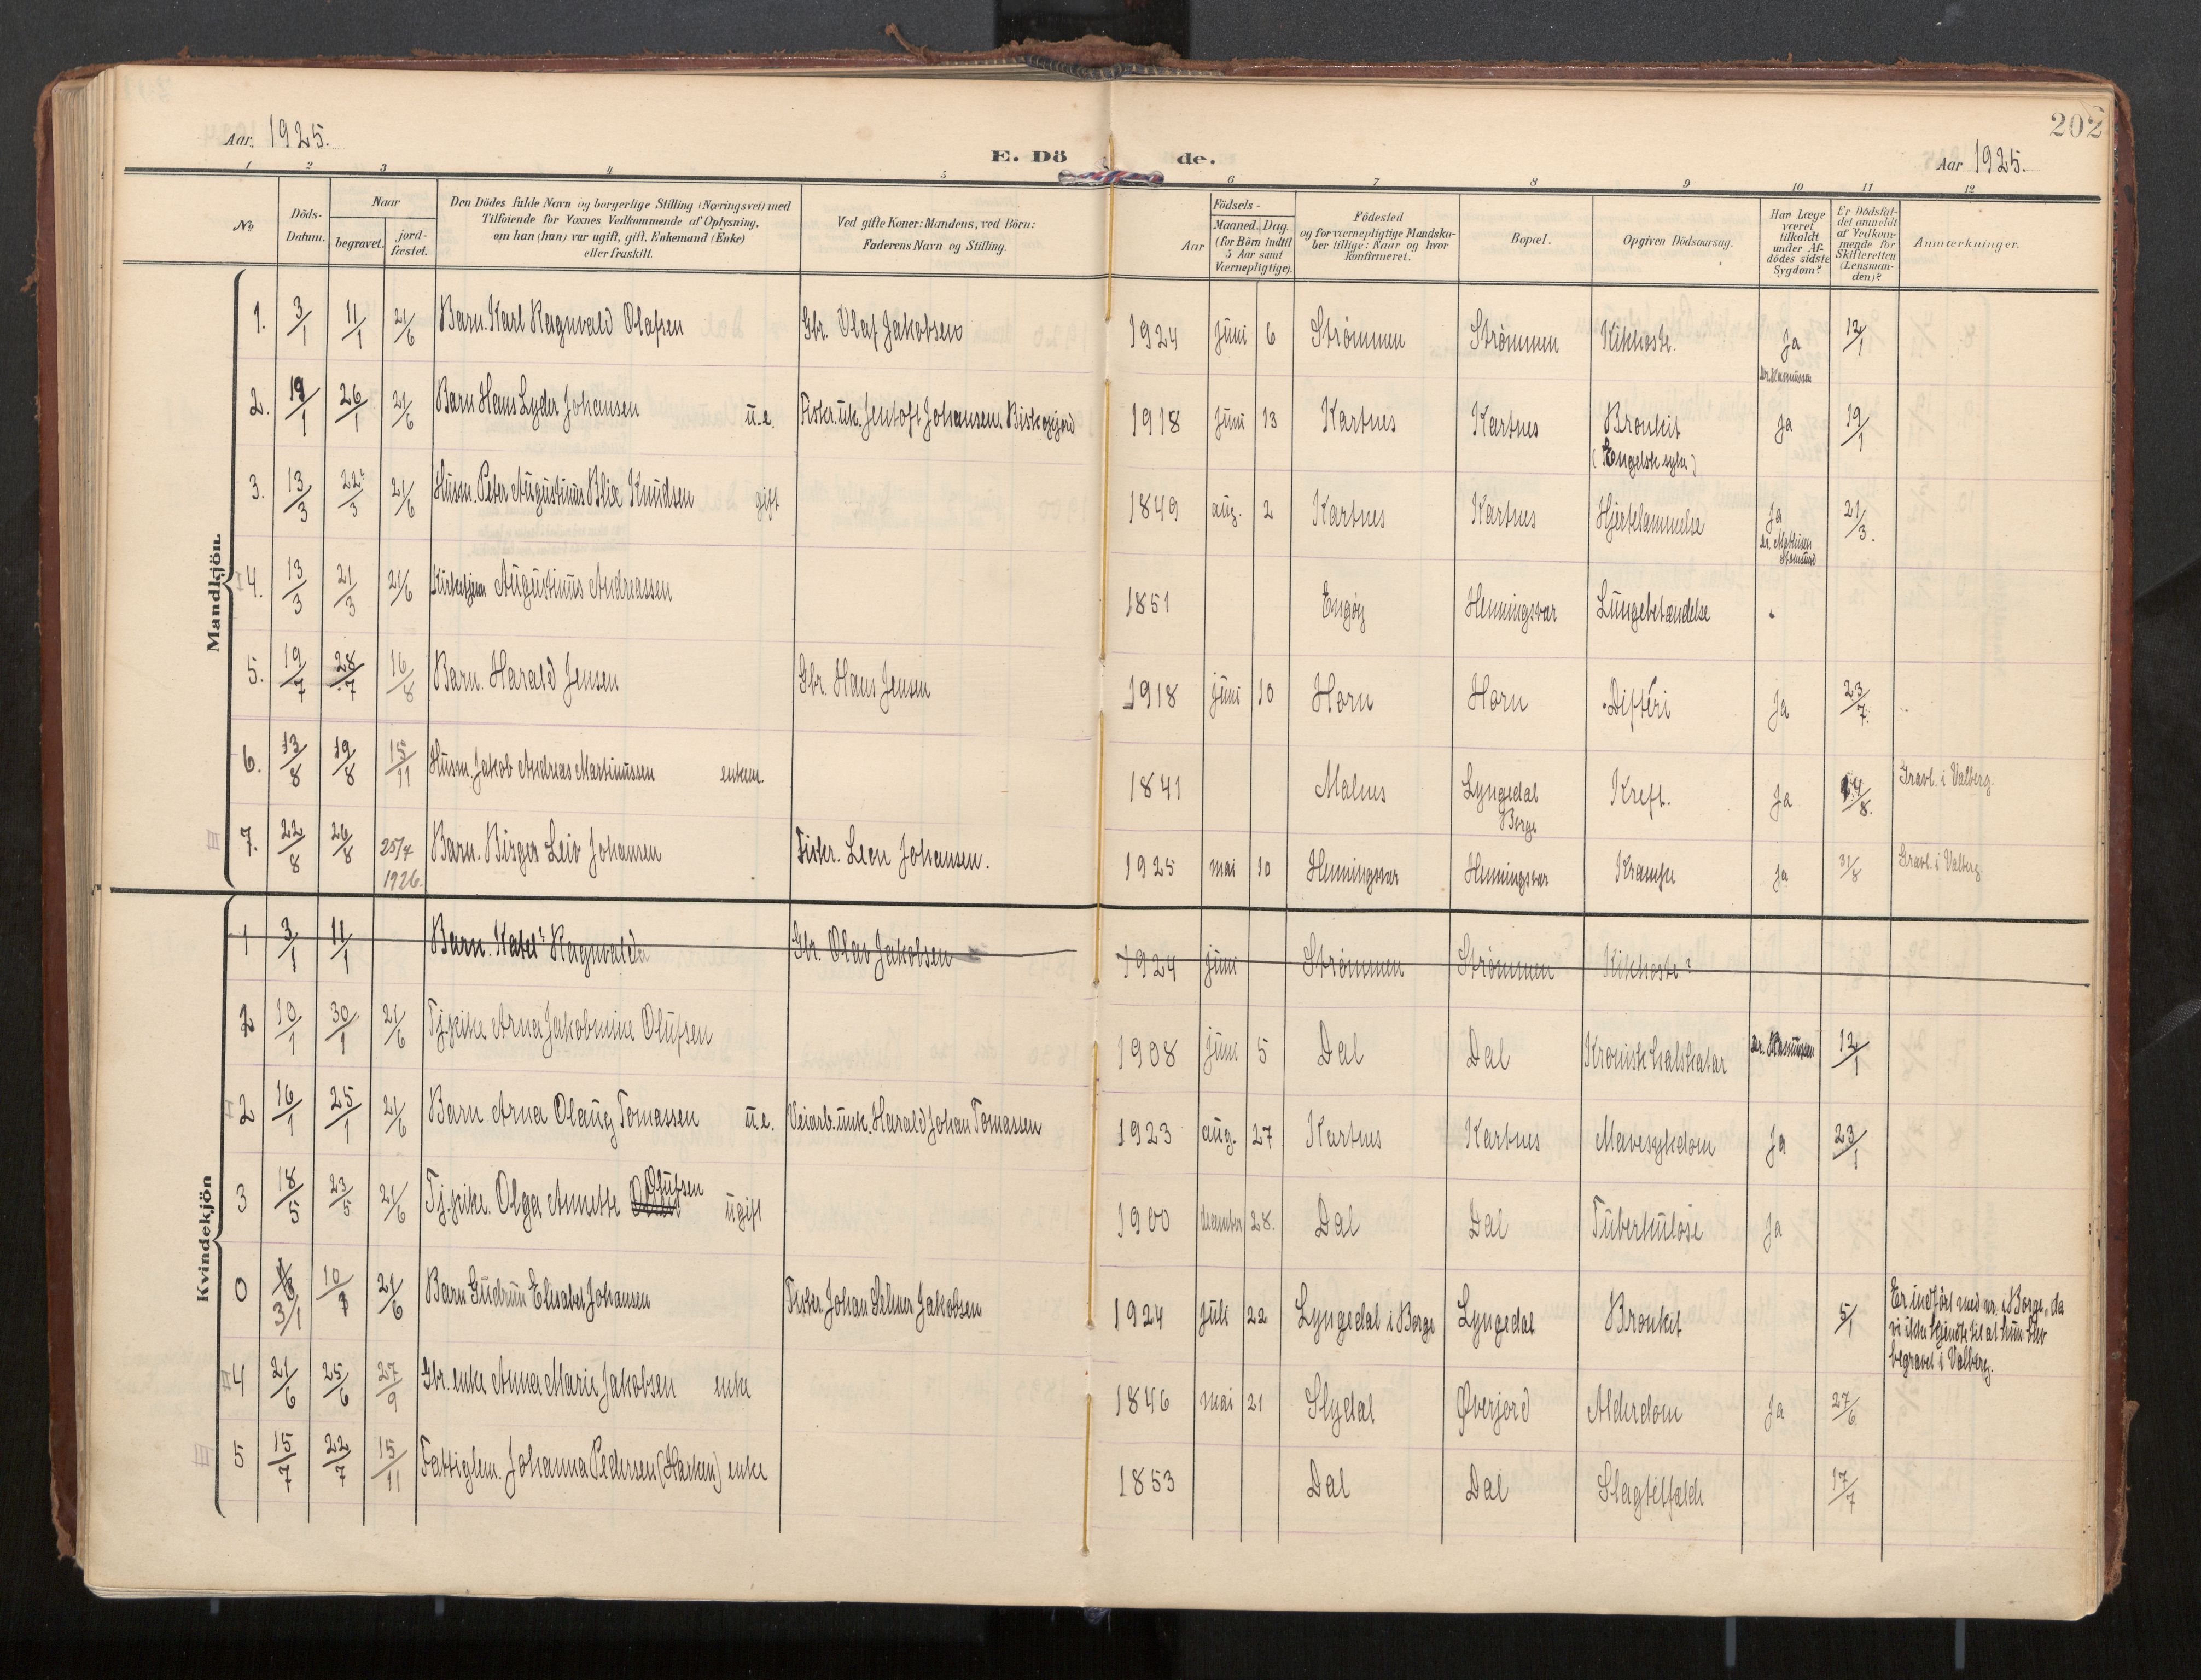 202
Aar. 1925.
E. Dö de.
Aar 1925.
1 2 3 4 5 6 7 8 9 10 11 12
No.
Döds-Datum.
Naar
begravet.
jord-fæstet.
Den Dödes fulde Navn og borgerlige Stilling (Næringsvei) med
Tilföiende for Voxnes Vedkommende af Oplysning,
om han (hun) var ugift, gift, Enkemand (Enke)
eller fraskilt.
Ved gifte Koner: Mandens, ved Börn:
Faderens Navn og Stilling.
Aar
Födsels-
Maaned. Dag.
(for Börn indtil
5 Aar samt
Værnepligtige).
Födested
og for værnepligtige Mandska-
ber tillige: Naar og hvor
konfirmeret.
Bopæl.
Opgiven Dödsaarsag.
Har Læge
været
tilkaldt
under Af-
dödes sidste
Sygdom?
Er Dödsfal-
det anmeldt
af Vedkom-
mende for
Skifteretten
(Lensman-
den)?
Anmærkninger.
Mandkjön.
1. 3/1 11/1 21/6 Barn. Karl Ragnvald Olafsen Gbr. Olaf Jakobsen 1924 juni 6 Strømmen Strømmen Kikhoste. Ja 12/1
Dr. Rasmussen
2. 19/1 26/1 21/6 Barn Hans Lyder Johansen u.e. Fisker. unk. Jentoft Johansen. 1918 juni 13 Kartnes Kartnes Bronkit ja 19/1
(Engelsk syke)
3. 13/3 22/3 21/6 Husm. Peter Augustinus Blix Knudsen gift 1849 aug. 2 Kartnes Kartnes Hjertelammelse Ja 21/3.
4. 13/3 21/3 21/6 Augustinus Andreassen 1851 Engøy Henningsvær Lungebetændelse
5. 19/7 28/7 16/8 Barn. Harald Jensen Gbr. Hans Jensen 1918 juni 10 Horn Horn Difteri Ja 23/7.
6. 13/8 19/8 15/11 Husm. Jakob Andreas Martinussen enkem. 1841 Malnes Lyngedal Kreft. Ja 14/8. Gravl. i Valberg.
Borge
7. 22/8 26/8 25/4 Barn. Birger Leiv Johansen Fisker. Leon Johansen. 1925 mai 10 Henningsvær Henningsvær Krampe ja 31/8 Gravl. i Valberg.
1926.
Kvindekjön
1 3/1 11/1 Barn. Ragnvalda Gbr. Olav Jakobsen 1924 juni Strømmen Strømmen Kikhoste
2 10/1 30/1 21/6 Tj.pike Arna Jakobmine Olufsen 1908 juni 5 Dal Dal Kronisk halskatar Dr. Rasmussen 12/1
2 16/1 25/1 21/6 Barn Arna Olaug Tomassen u.e. Veiarb. unk. Harald Johan Tomassen 1923 aug. 27 Kartnes Kartnes Mavesykdom Ja 23/1
3 18/5 23/5 21/6 Tj.pike. Olga Annette Olufsen ugift 1900 december 28. Dal Dal Tuberkulose Ja
0 3/1 10/1 21/6 Barn Gudrun Elisabet Johansen Fisker Johan Selmer Jakobsen 1924 juli 22 Lyngedal i Borge Lyngedal Bronkit 5/1 Er indført med nr. i Borge, da
vi ikke kjendte til at hun blev
begravet i Valberg.
4 21/6 25/6 27/9 Gbr. enke Anna Marie Jakobsen enke 1846 mai 21 Slydal Øverjord Alderdom Ja 27/6
5 15/7 22/7 15/11 Fattiglem. Johanna Pedersen (Harken) enke 1853 Dal Dal Slagtilfælde 17/7